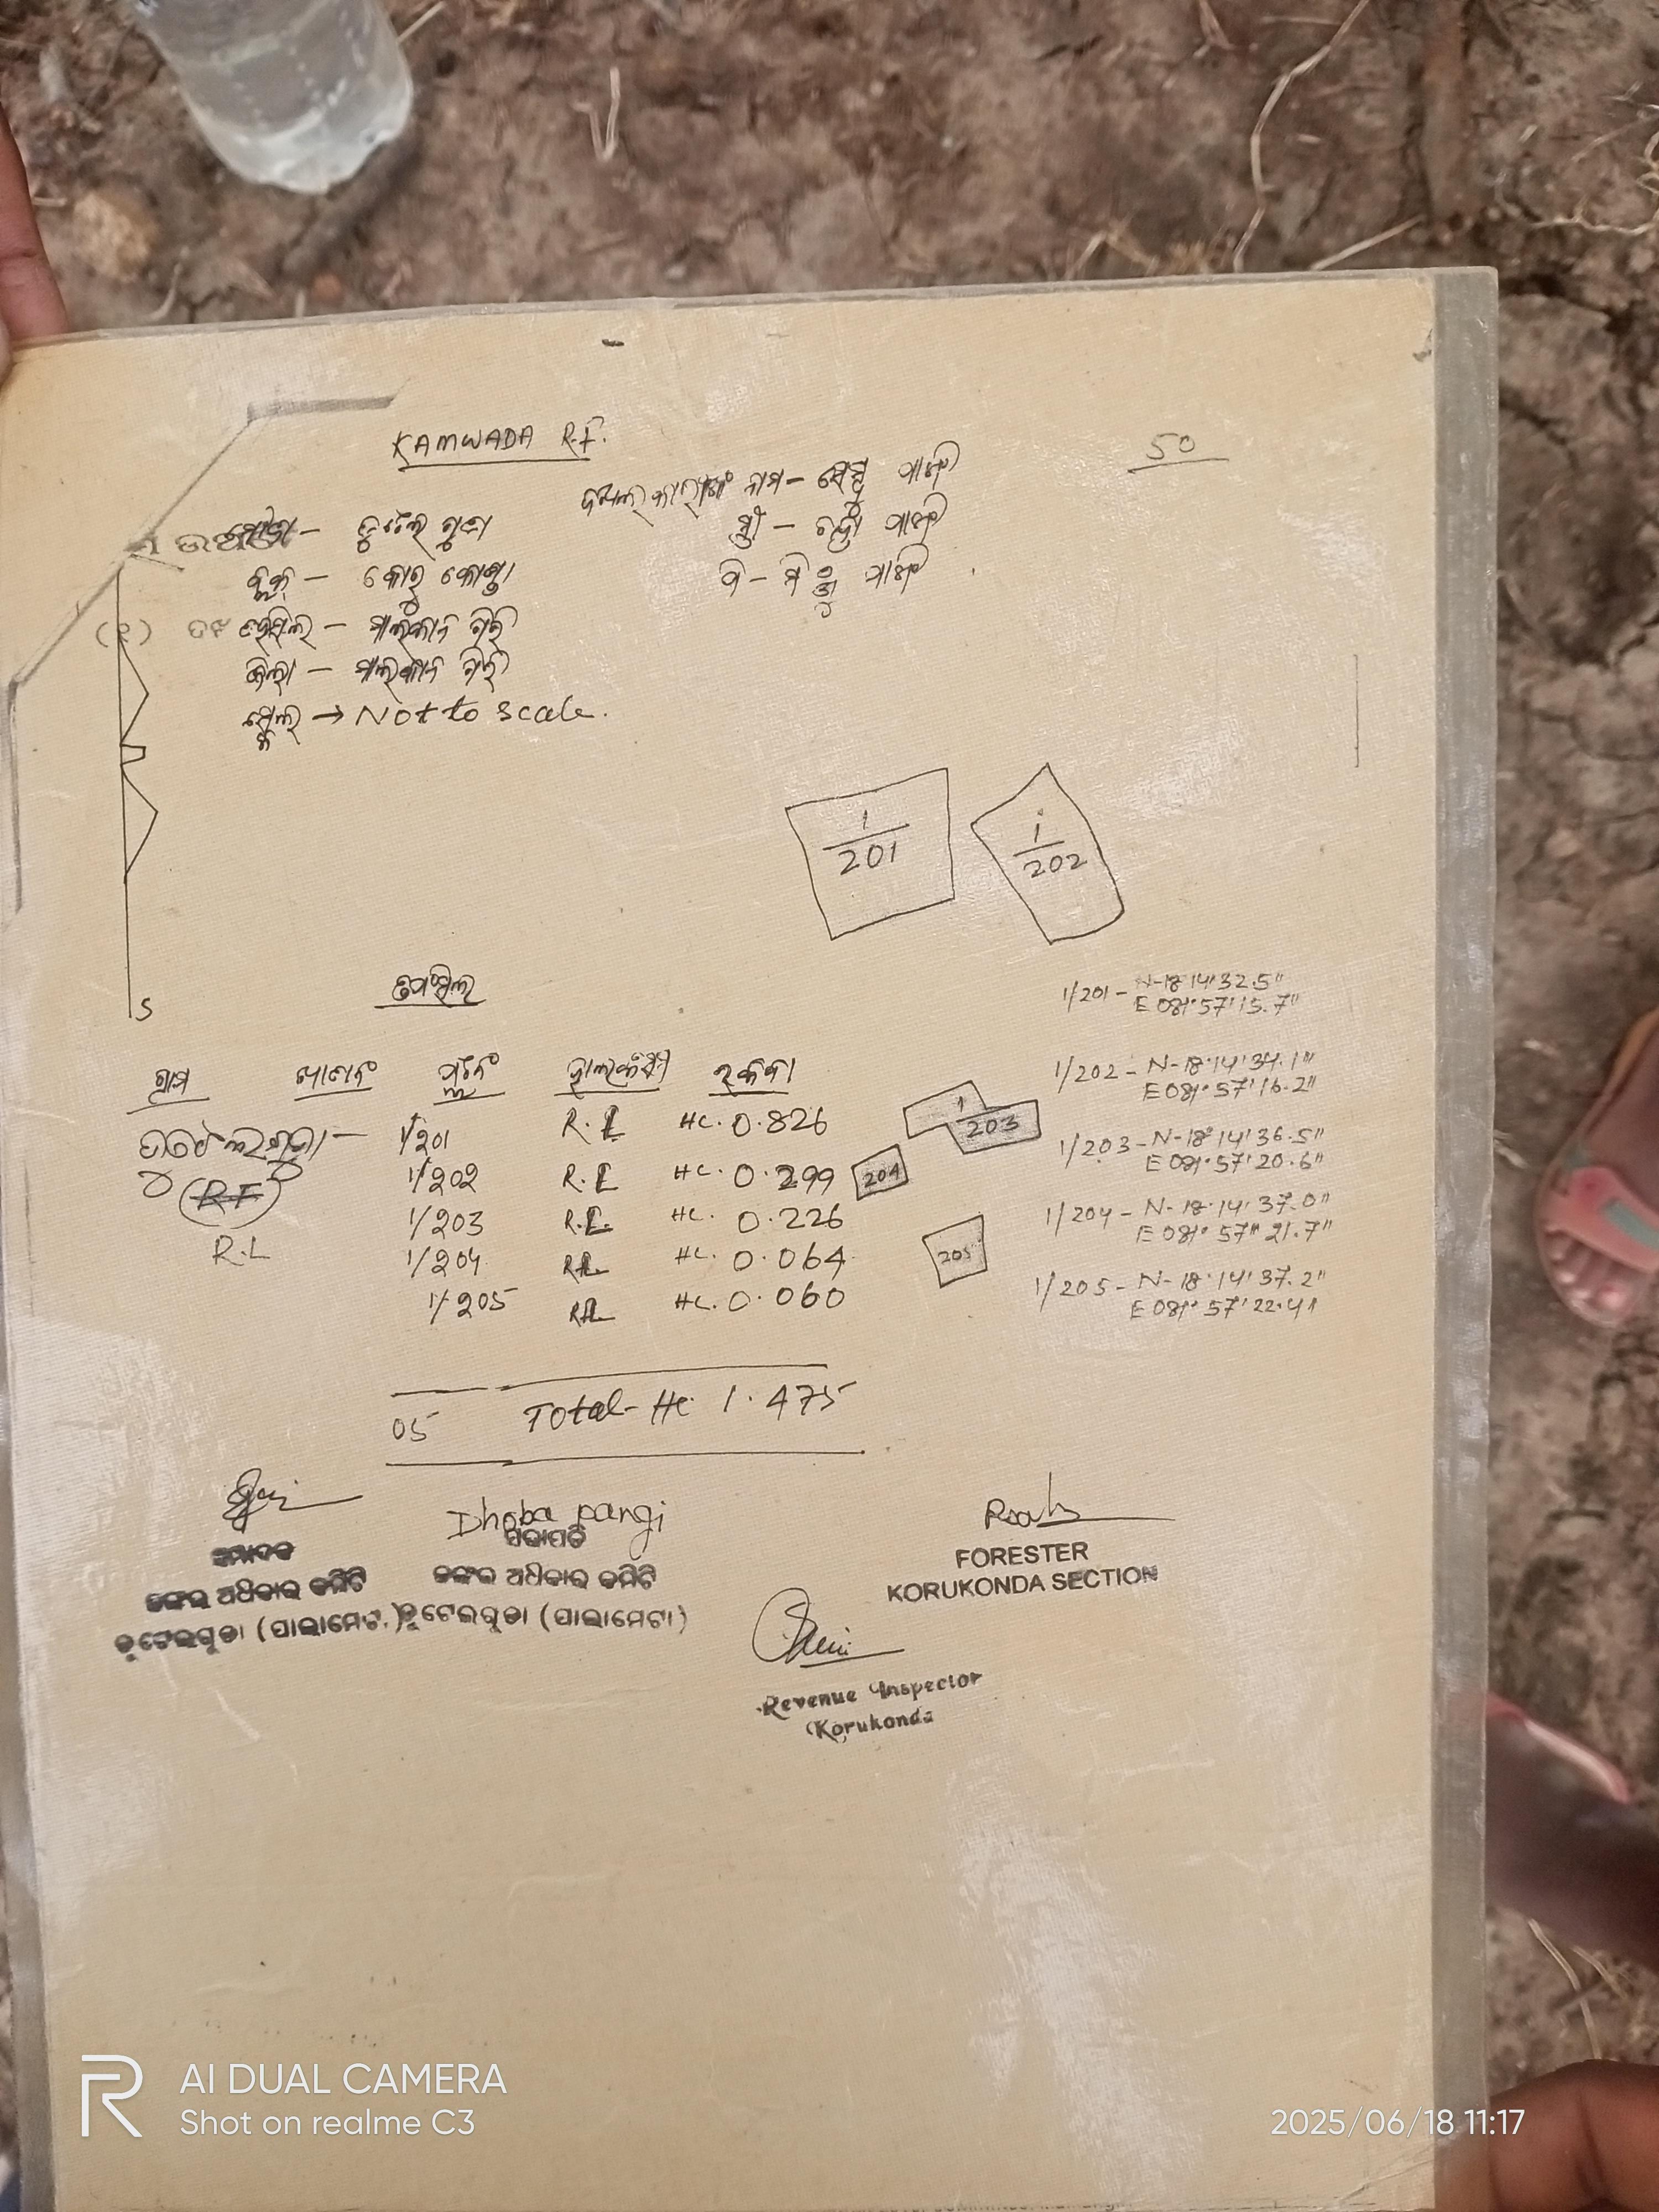 KAMWADA R.F.
50
ଦଖଲକାରୀଙ୍କ ନାମ -
ମୌଜା - ତୁଟେଲ ଗୁଡା
ସ୍ତ୍ରୀ -
ବ୍ଲକ୍ - କୋରୁ କୋଣ୍ଡା
ପି -
ତହସିଲ - ମାଲକାନ ଗିରି
ଜିଲ୍ଲା - ମାଲକାନ ଗିରି
ସ୍କେଲ୍ → Not to scale.
1/201
1/202
S
ତପସିଲ
1/201 - N-18°14'32.5"
E 081°57'15.7"
1/202 - N-18°14'34.1"
E 081°57'16.2"
1/203 - N-18°14'36.5"
E 081°57'20.6"
1/204 - N-18°14'37.0"
E 081°57"21.7"
1/205 - N-18°14'37.2"
E 081°57'22.4"
ଗ୍ରାମ ଖାତା ନଂ ପ୍ଲଟ ନଂ ହାଲ କିସମ ରକବା
1/201 R.L Hc. 0.826
1/202 R.L Hc. 0.299
(RF) 1/203 R.L. Hc. 0.226
R.L 1/204 RL Hc. 0.064
1/205 RL Hc. 0.060
1/203
204
205
05 Total - Hc 1.475
Dhoba pangi
ସଭାପତି
ଜଙ୍ଗଲ ଅଧିକାର କମିଟି
ଜଙ୍ଗଲ ଅଧିକାର କମିଟି
ତୁଟେଲଗୁଡା (ପାଲାମେଟା)
ତୁଟେଲଗୁଡା (ପାଲାମେଟା)
FORESTER
KORUKONDA SECTION
Revenue Inspector
Korukonda
R AI DUAL CAMERA
Shot on realme C3
2025/06/18 11:17